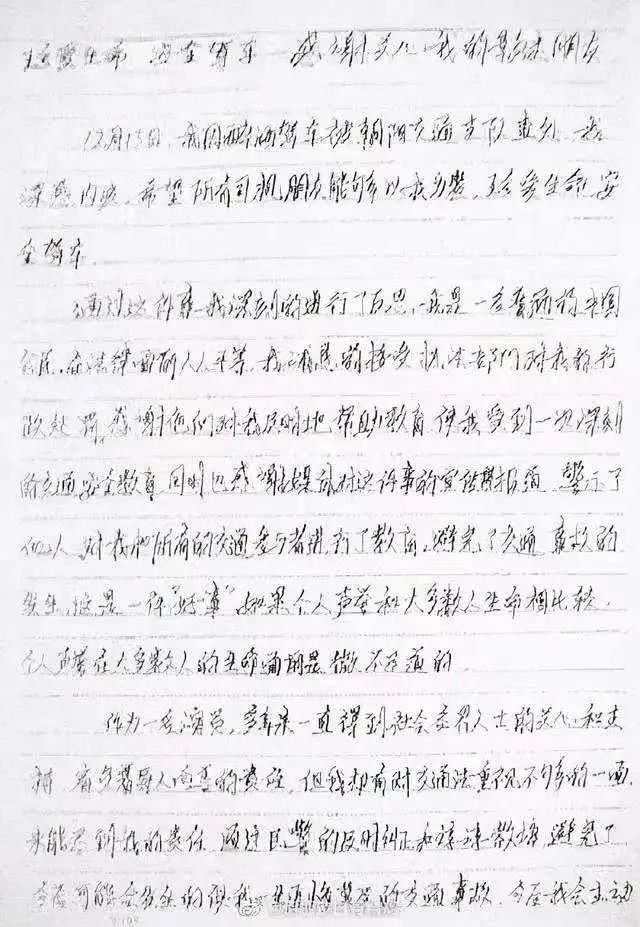 珍爱生命 安全驾车 感谢关心我的 朋友
12月15日,我因酒驾车被朝阳交通支队查处,我
深感内疚,希望所有司机朋友能够以我为鉴,珍爱生命,安
全驾车.
通过这件事我深刻的进行了反思,我是一名普通的中国
公民,在法律面前人人平等,我诚恳的接受执法部门对我的行
政处罚,感谢他们对我及时地、帮助教育,使我受到一次深刻
的交通安全教育,同时也感谢媒体对这件事的宣传报道,警示了
他人,对我和所有的交通参与者进行了教育,避免了交通事故的
发生,这是一件"好事",如果个人声誉和大多数人生命相比较,
个人声誉在大多数人的生命面前是微不足道的.
作为一名演员,多年来一直得到社会各界人士的关心和支
持,肩负着 的责任,但我却有对交通法重视不够的一面,
未能尽到我的责任,通过民警的及时纠正和谆谆教诲,避免了
今后可能会发生的使我一生 的交通事故.今后我会主动